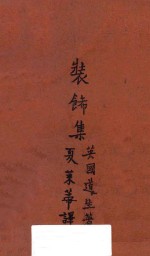 裝飾集
英國道生著
夏萊蒂譯